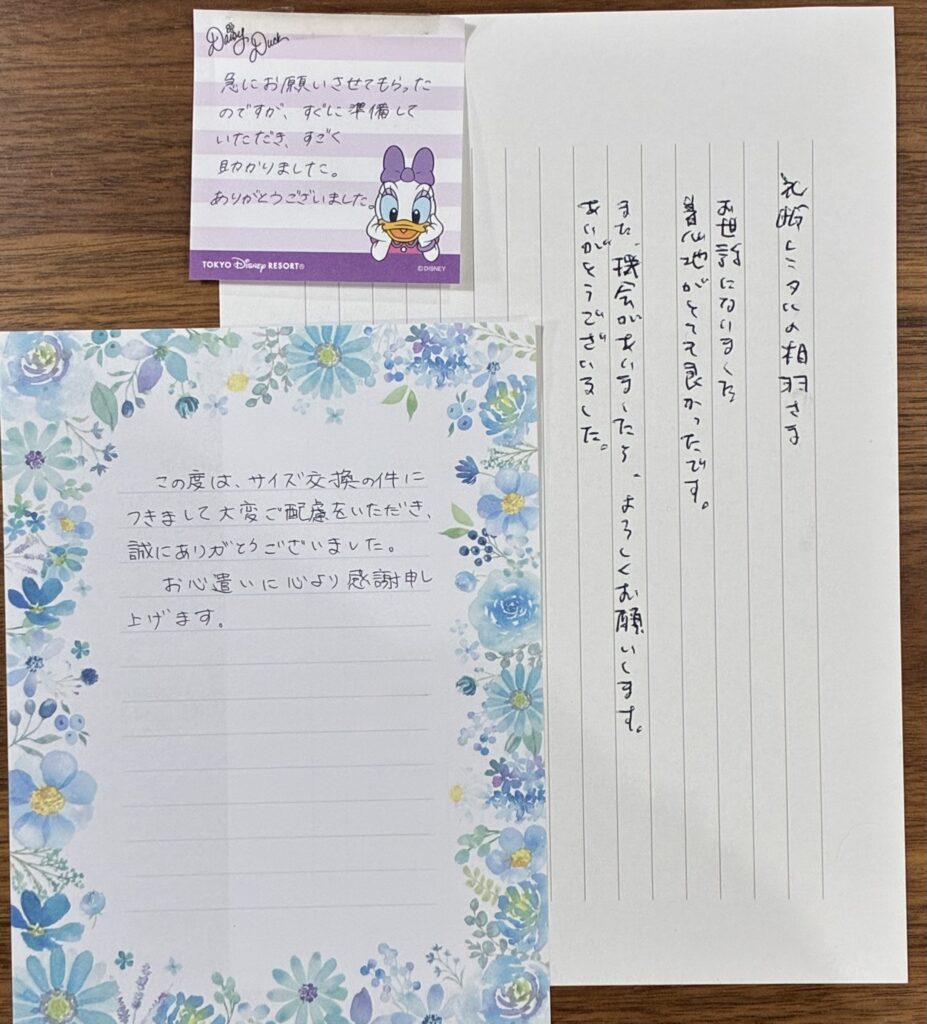 Daisy Duck
急にお願いさせてもらった
のですが、すぐに準備して
いただき、すごく
助かりました。
ありがとうございました。
TOKYO Disney RESORT®
©DISNEY
礼服レンタルの相羽さま
お世話になりました
着心地がとても良かったです。
また、機会がありましたら、よろしくお願いします。
ありがとうございました。
この度は、サイズ交換の件に
つきまして大変ご配慮をいただき、
誠にありがとうございました。
お心遣いに心より感謝申し
上げます。